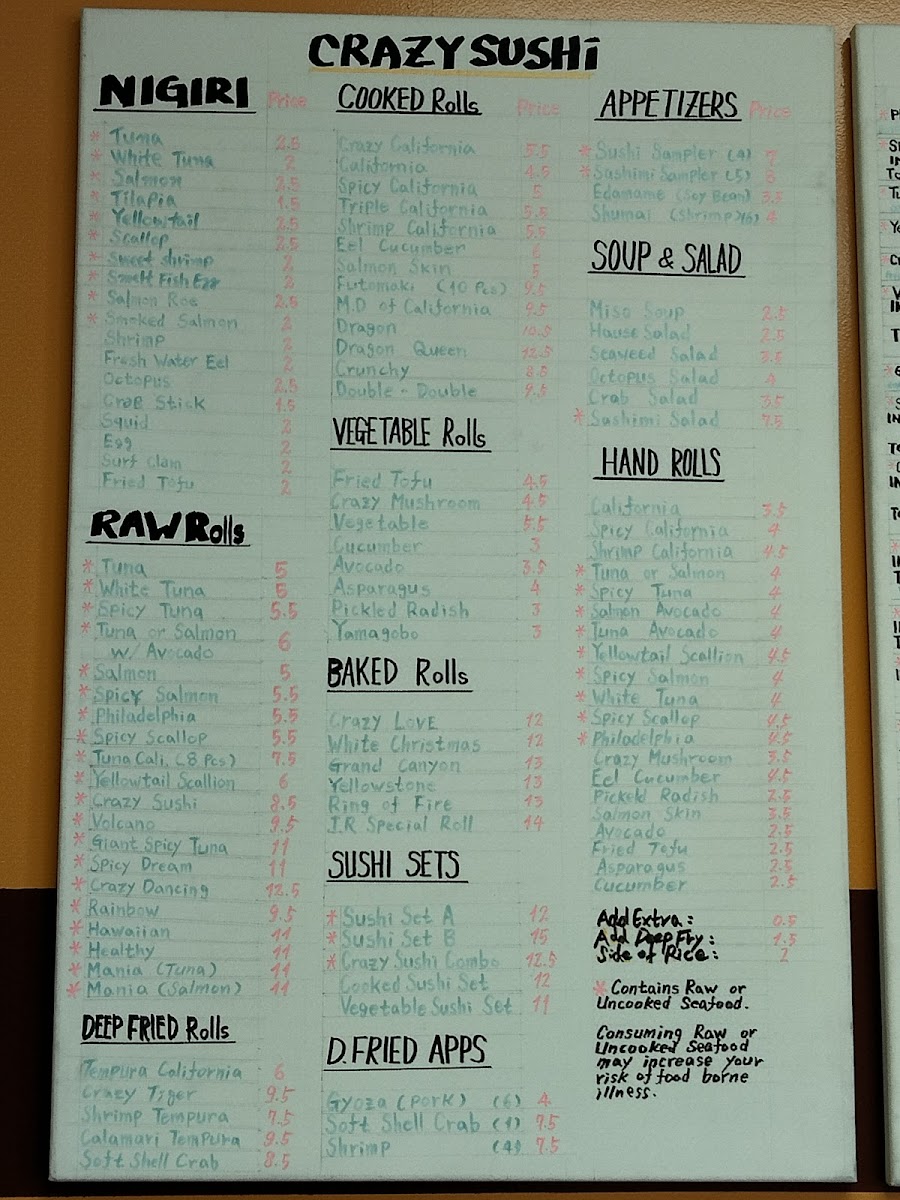 CRAZY SUSHi
NIGIRI Price
* Tuna 2.5
* White Tuna 2
* Salmon 2.5
* Tilapia 1.5
* Yellowtail 2.5
* Scallop 2.5
* Sweet shrimp 2
* Smelt Fish Egg 2
* Salmon Roe 2.5
* Smoked Salmon 2
Shrimp 2
Fresh Water Eel 2
Octopus 2.5
Crab Stick 1.5
Squid 2
Egg 2
Surf Clam 2
Fried Tofu 2
RAW Rolls
* Tuna 5
* White Tuna 5
* Spicy Tuna 5.5
* Tuna or Salmon
w/ Avocado 6
* Salmon 5
* Spicy Salmon 5.5
* Philadelphia 5.5
* Spicy Scallop 5.5
* Tuna Cali. (8 Pcs) 7.5
* Yellowtail Scallion 6
* Crazy Sushi 8.5
* Volcano 9.5
* Giant Spicy Tuna 11
* Spicy Dream 11
* Crazy Dancing 12.5
* Rainbow 9.5
* Hawaiian 11
* Healthy 11
* Mania (Tuna) 11
* Mania (Salmon) 11
DEEP FRIED Rolls
Tempura California 6
Crazy Tiger 9.5
Shrimp Tempura 7.5
Calamari Tempura 9.5
Soft Shell Crab 8.5
COOKED Rolls Price
Crazy California 5.5
California 4.5
Spicy California 5
Triple California 5.5
Shrimp California 5.5
Eel Cucumber 6
Salmon Skin 5
Futomaki (10 Pcs) 9.5
M.D of California 9.5
Dragon 10.5
Dragon Queen 12.5
Crunchy 8.5
Double - Double 9.5
VEGETABLE Rolls
Fried Tofu 4.5
Crazy Mushroom 4.5
Vegetable 5.5
Cucumber 3
Avocado 3.5
Asparagus 4
Pickled Radish 3
Yamagobo 3
BAKED Rolls
Crazy LovE 12
White Christmas 12
Grand Canyon 13
Yellowstone 13
Ring of Fire 13
J.R Special Roll 14
SUSHI SETS
* Sushi Set A 12
* Sushi Set B 15
* Crazy Sushi Combo 12.5
Cooked Sushi Set 12
Vegetable Sushi Set 11
D.FRIED APPS
Gyoza (Pork) (6) 4
Soft Shell Crab (1) 7.5
Shrimp (4) 7.5
APPETIZERS Price
* Sushi Sampler (4) 7
* Sashimi Sampler (5) 8
Edamame (Soy Bean) 3.5
Shumai (Shrimp)(6) 4
SOUP & SALAD
Miso Soup 2.5
House Salad 2.5
Seaweed Salad 3.5
Octopus Salad 4
Crab Salad 3.5
* Sashimi Salad 7.5
HAND ROLLS
California 3.5
Spicy California 4
Shrimp California 4.5
* Tuna or Salmon 4
* Spicy Tuna 4
* Salmon Avocado 4
* Tuna Avocado 4
* Yellowtail Scallion 4.5
* Spicy Salmon 4
* White Tuna 4
* Spicy Scallop 4.5
* Philadelphia 4.5
Crazy Mushroom 3.5
Eel Cucumber 4.5
Pickeld Radish 2.5
Salmon Skin 3.5
Avocado 2.5
Fried Tofu 2.5
Asparagus 2.5
Cucumber 2.5
Add Extra : 0.5
Add Deep Fry : 1.5
Side of Rice : 2
* Contains Raw or
Uncooked Seafood.
Consuming Raw or
Uncooked Seafood
may increase your
risk of food borne
illness.